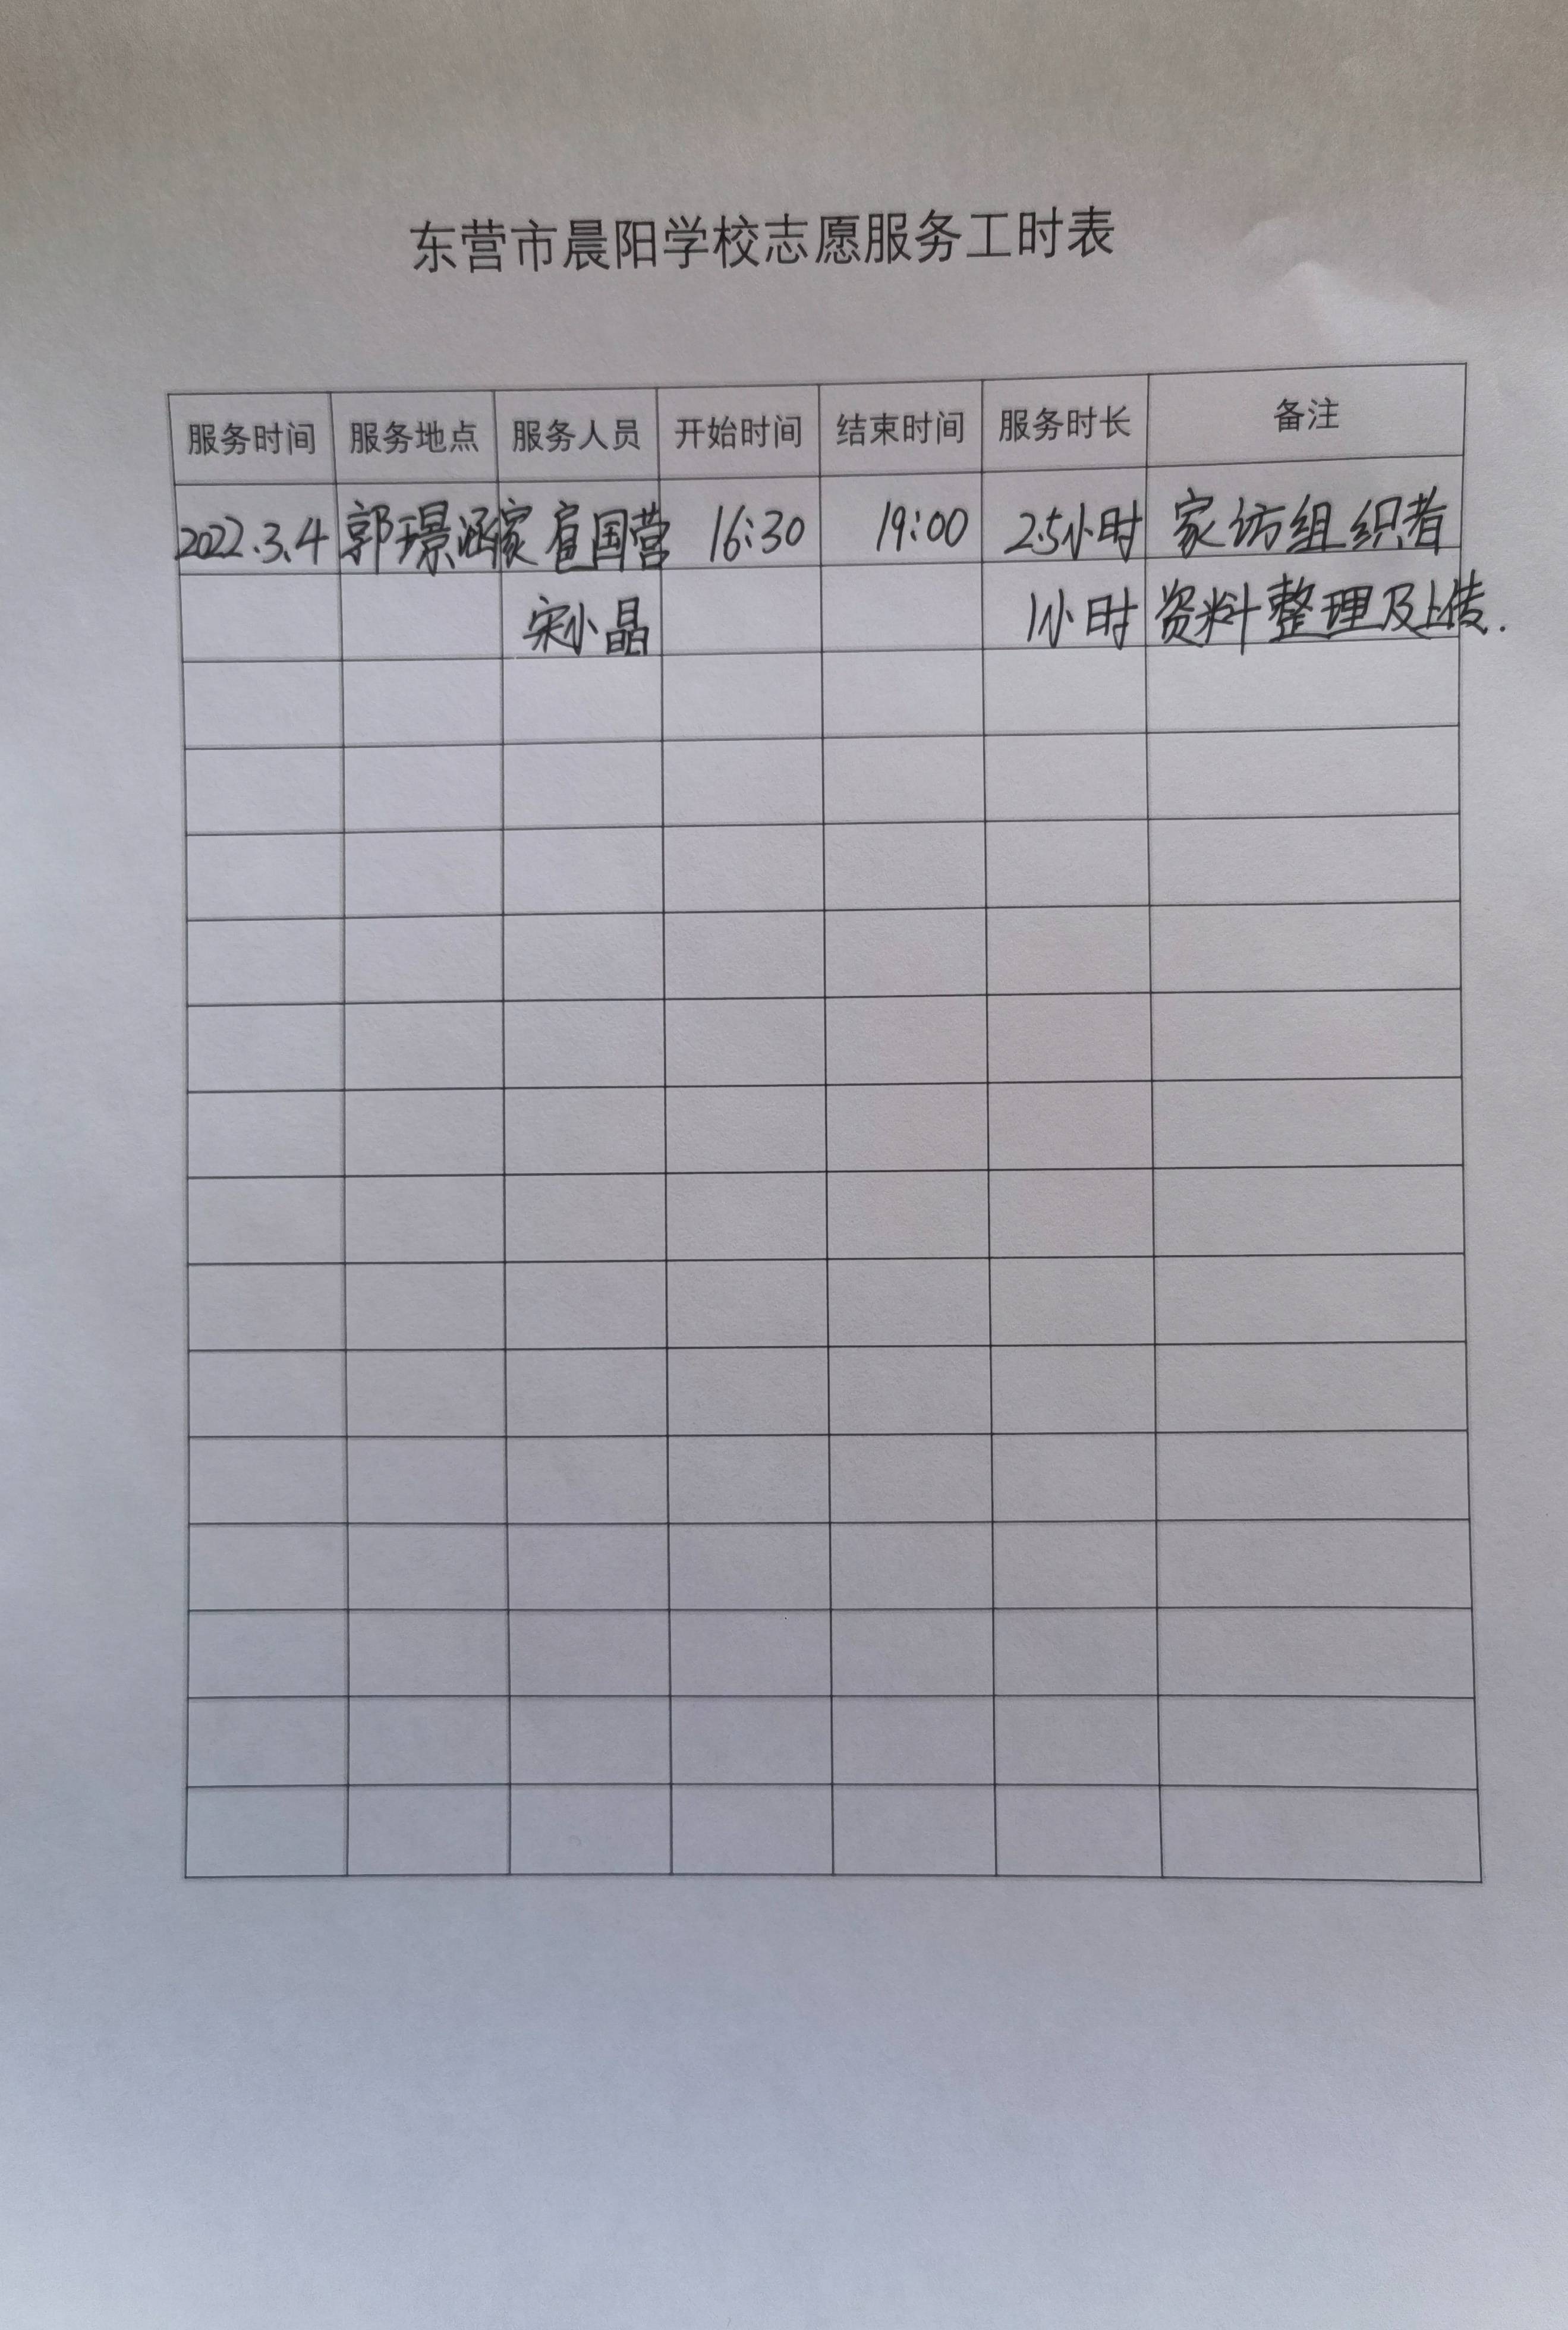 东营市晨阳学校志愿服务工时表
服务时间 服务地点 服务人员 开始时间 结束时间 服务时长 备注
2022.3.4 郭璟涵家 扈国营 16:30 19:00 2.5小时 家访组织者
宋小晶 1小时 资料整理及上传.